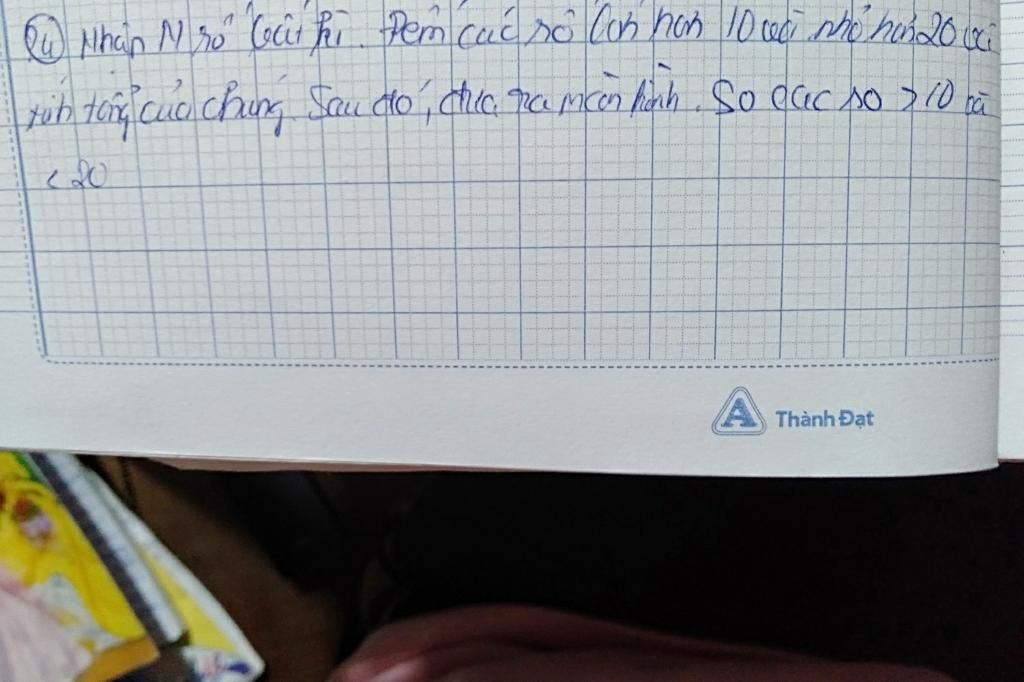 24 Nhập N số bất kì. Đếm các số lớn hơn 10 với nhỏ hơn 20 và
tính tổng của chúng. Sau đó, đưa ra màn hình. Số các số > 10 và
< 20
A Thành Đạt